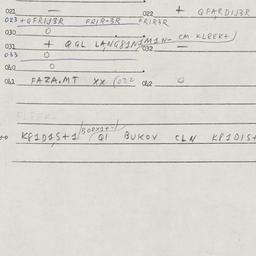 021 — 022 + QFARDIJ3R
023 + QFRIJ3R FRIR-3R +RIR3R
030 O
031 + QGL LANG81NJM1N- CM KLEEK+)
032 —
033 O
040 O
041 FAZA.MT XX (022 042 O
KP1D1S+1 /SOPX1+-/ Q1 BUKOV CLN KP1D1S+